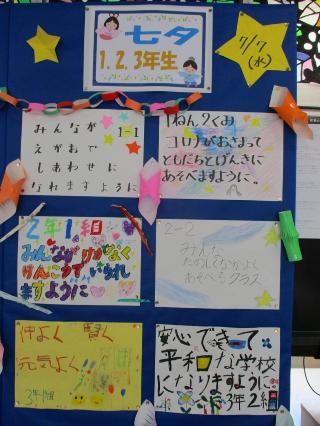 七夕
1.2.3年生
7/7
(水)
1-1
みんなが
えがおで
しあわせに
なれますように
1ねん2くみ
コロナがおさまって
ともだちとげんきに
あそべますように。
2年1組
みんながけがなく
けんこうでいられ
ますように
2-2
みんな
たのしくなかよく
あそべるクラス
仲よく 賢く
元気よく
3年1組
安心できて
平和な学校
になりますように
3年2組